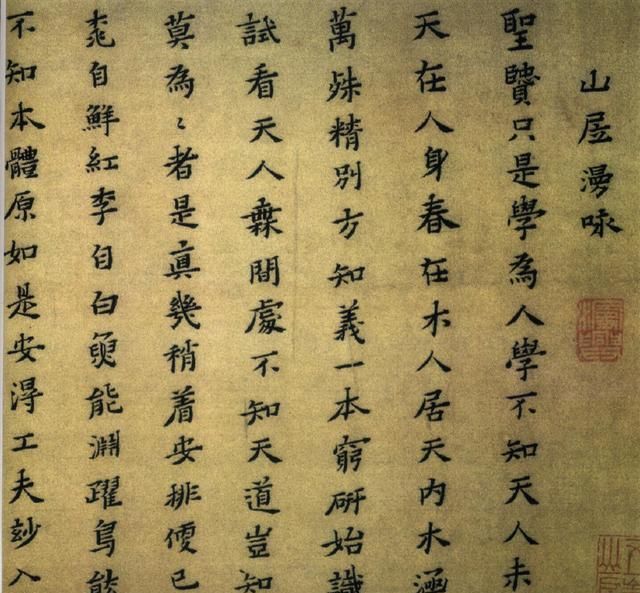 山居漫咏
聖賢只是學為人學不知天人未
天在人身春在木人居天内木涵
萬殊精別方知義一本窮研始識
試看天人無間處不知天道豈知
莫為〻者是真幾稍着安排便已
桃自鮮紅李自白魚能淵躍鳥能
不知本體原如是安得工夫玅入